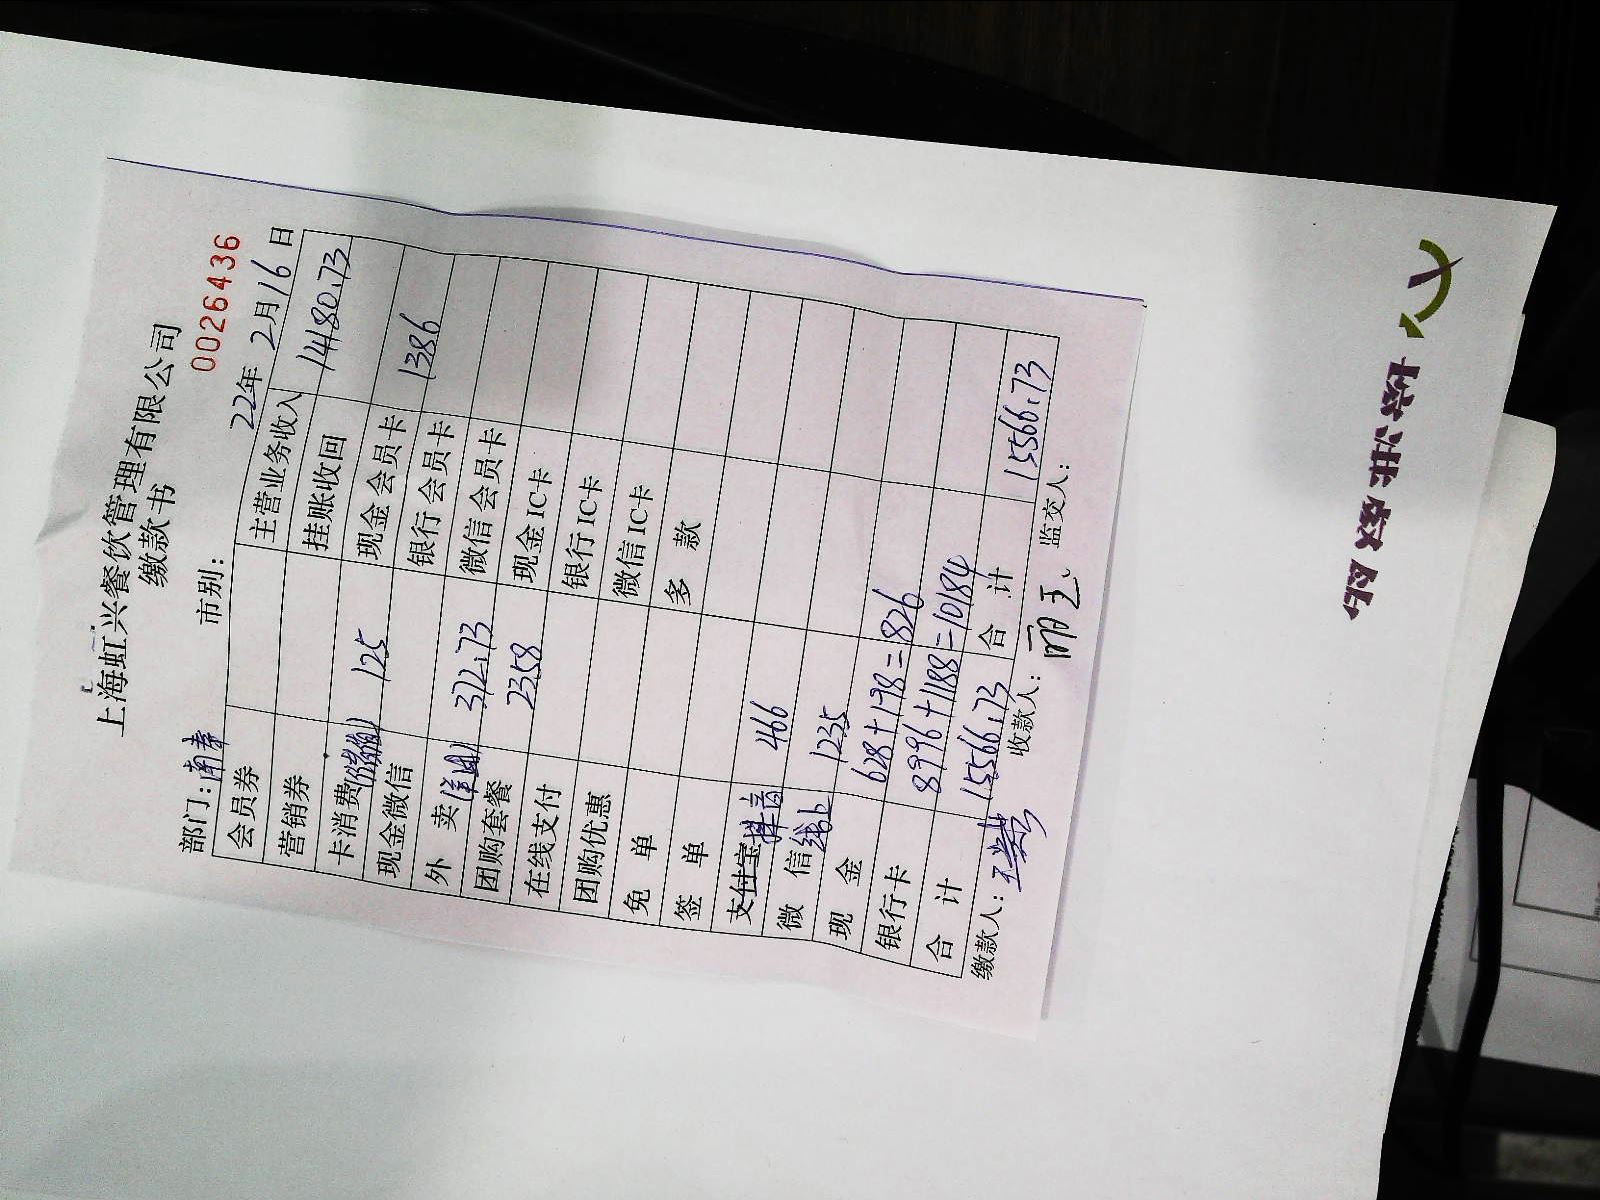 上海虹兴餐饮管理有限公司
缴款书
0026436
部门: 市别: 22年 2月 16日
会员券 主营业务收入 14180.73
营销券 挂账收回
卡消费 125 现金会员卡 1386
现金微信 银行会员卡
外 卖 372.73 微信会员卡
团购套餐 2358 现金IC卡
在线支付 银行IC卡
团购优惠 微信IC卡
免 单 多 款
签 单
支付宝 抖音 466
微 信 1235
现 金 628+198=826
银行卡 8996+1188=10184
合 计 15566.73 合 计 15566.73
缴款人: 收款人: 监交人: